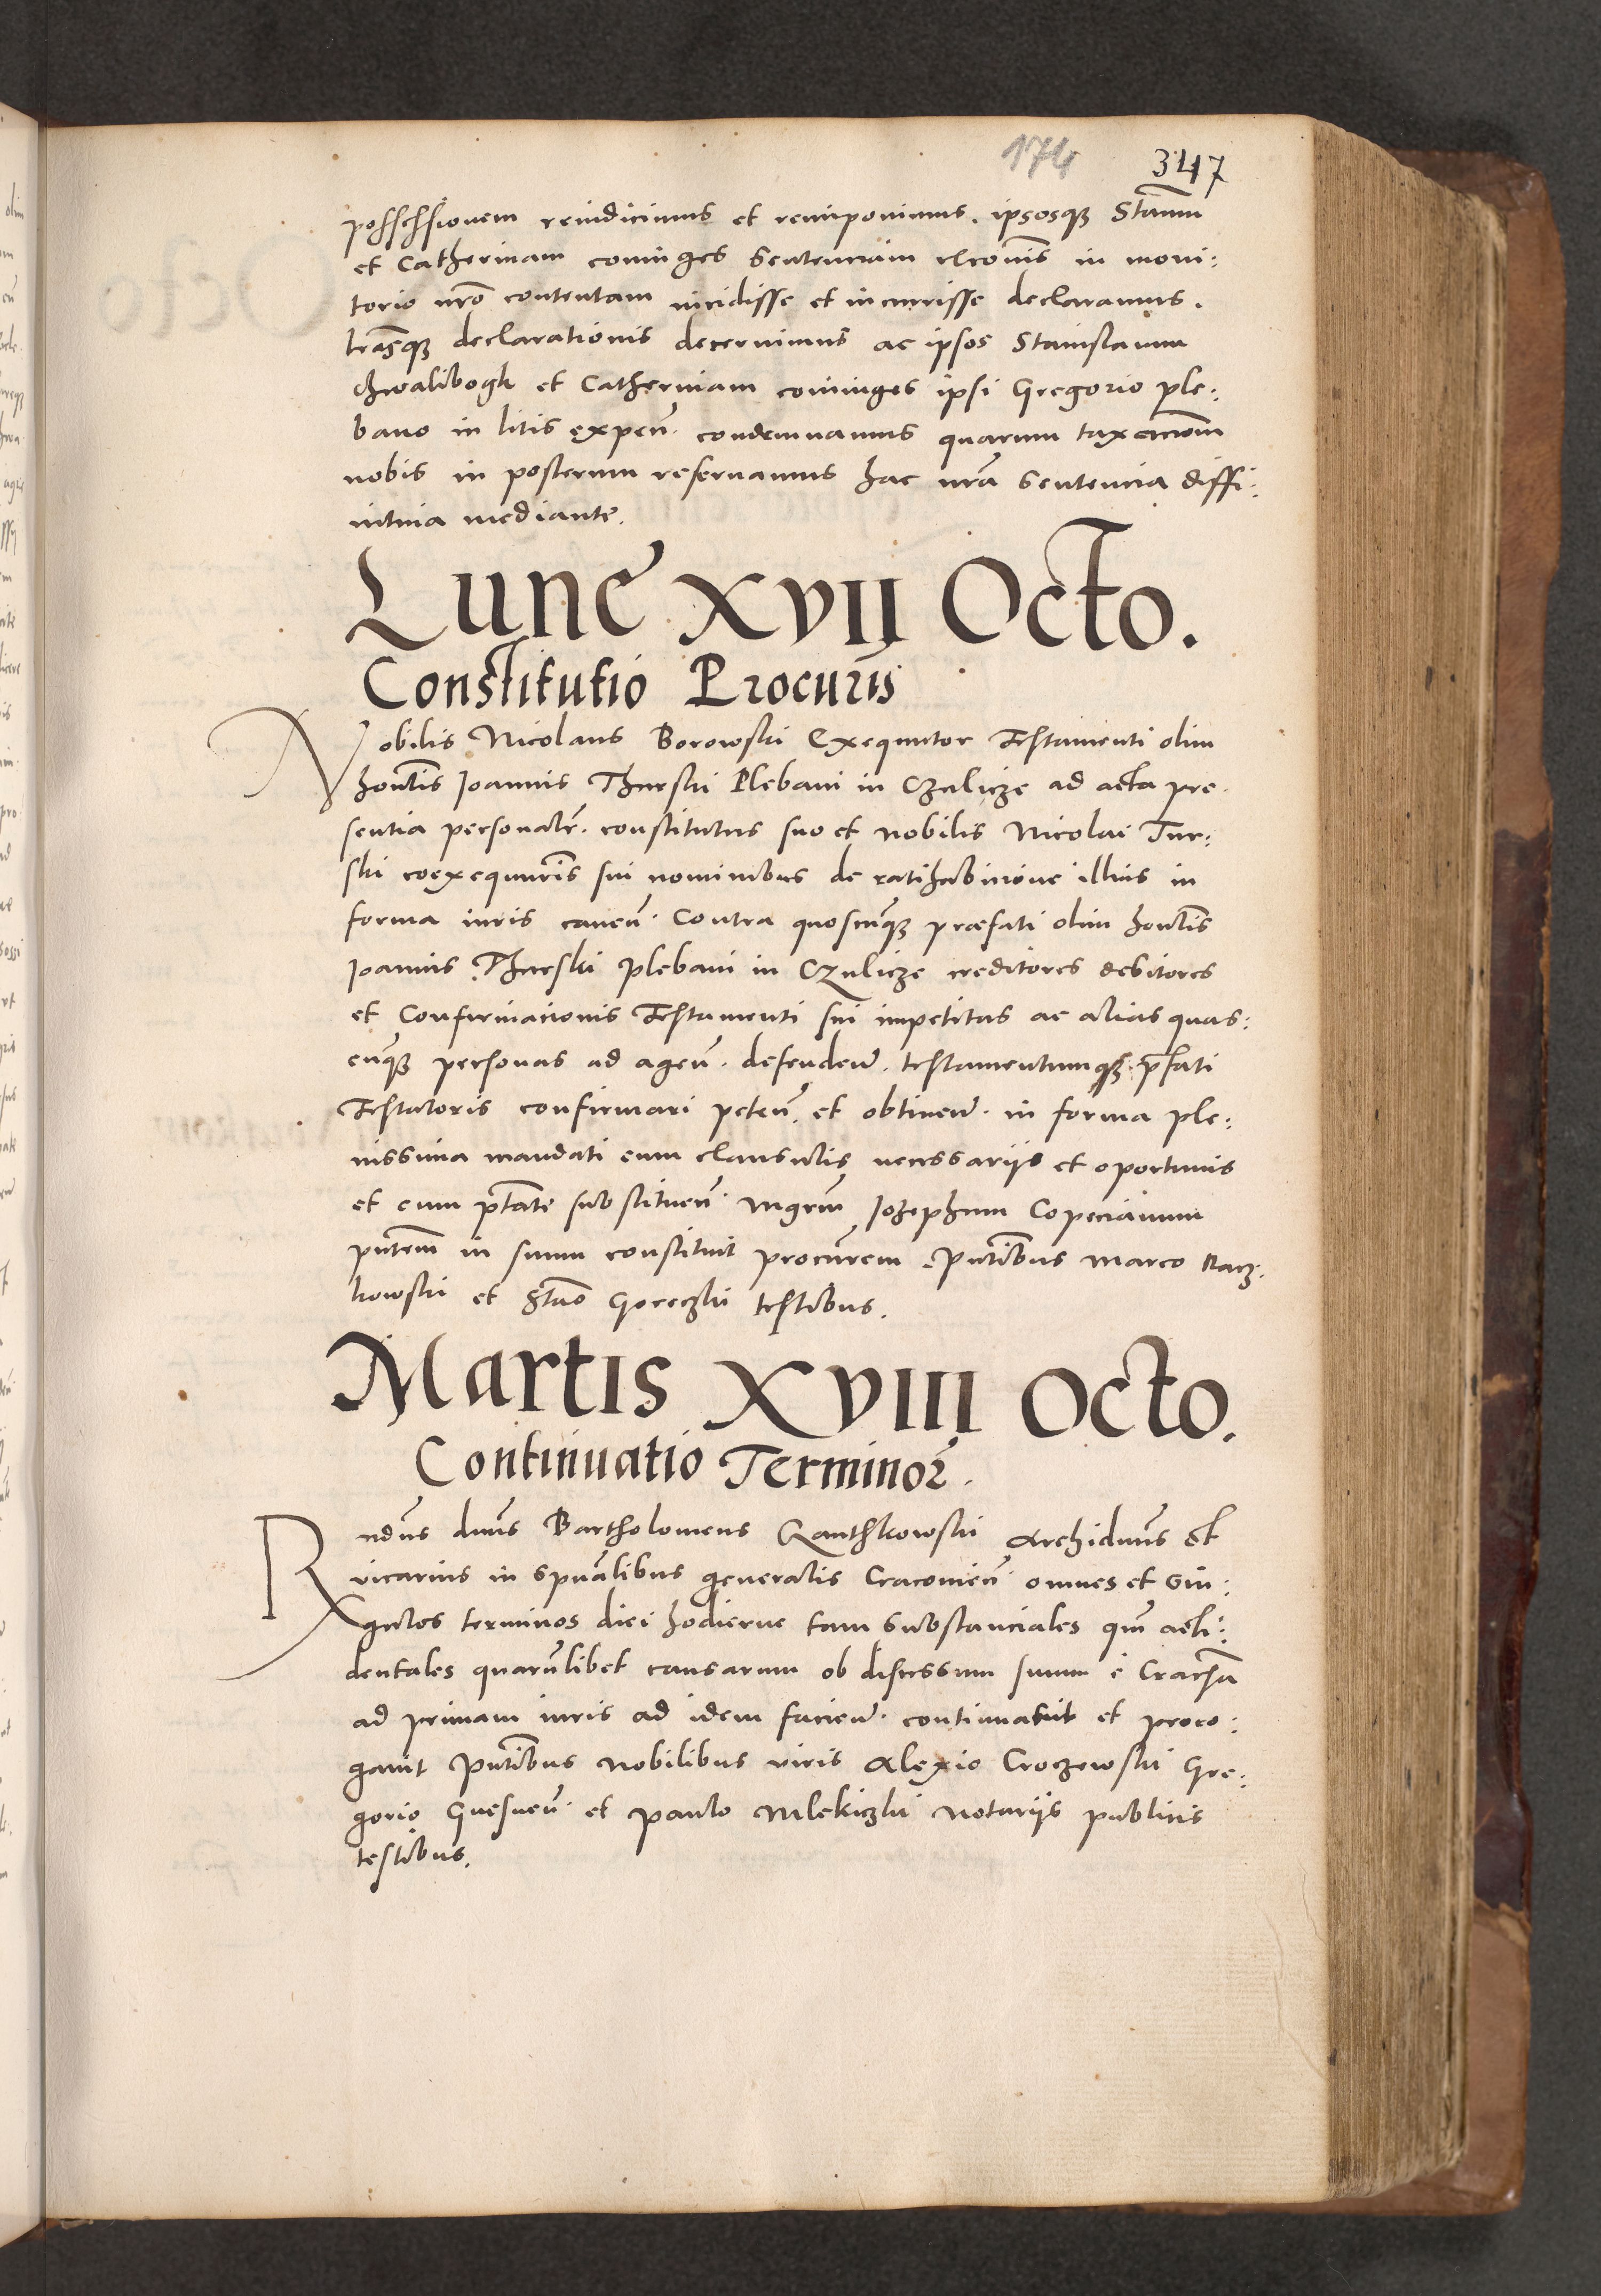 174 347
possessionem reindicimus et reimponimus. ipsosque Stanum
et Catherinam coniuges Sentenciam exconis in moni:
torio nro contentam incidisse et incurrisse declaramus.
lrasque declarationis decernimus ac ipsos Stanislaum
chwalibogk et Catherinam coniuges ipsi Gregorio ple:
bano in litis expen. condemnamus quarum taxacionem
nobis in posterum reseruamus hac nra Sentencia diffi:
nitiua mediante.
Lune XVII Octo.
Constitutio Procuris
Nobilis Nicolaus Borowski Exequutor Testamenti olim
honlis Joannis Thurski Plebani in Czulicze ad acta pre.
sentia personalr. constitutus suo et nobilis Nicolai Tur:
ski coexequuris sui nominibus de ratihabicione illius in
forma iuris cauen. Contra quoscunque præfati olim honlis
Joannis Thurski plebani in Czulicze creditores debitores
et Confirmacionis Testamenti sui impetitas ac alias quas:
cunque personas ad agen. defenden. testamentumque pfati
Testatoris confirmari peten. et obtinen. in forma ple:
nissima mandati cum clausulis necessarijs et oportunis
et cum ptate substituen. Mgrm Jozephum Copecianum
pntem in suum constituit procurem. Pntibus Marco Racz.
kowski et Stao Goreczki testibus.
Martis XVIII Octo.
Continuatio Terminor.
Rndus dnus Bartholomeus Ganthkowski Archidnus et
vicarius in Spualibus generalis Cracouien. omnes et Sin:
gulos terminos diei hodierne tam Substanciales qm acti:
dentales quarumlibet causarum ob discessum suum è
ad primam iuris ad idem facien. continuauit et proro:
gauit Pntibus nobilibus viris Alexio Croczowski Gre:
gorio Gnesnen. et Paulo Mlekiczki Notarijs publicis
testibus.